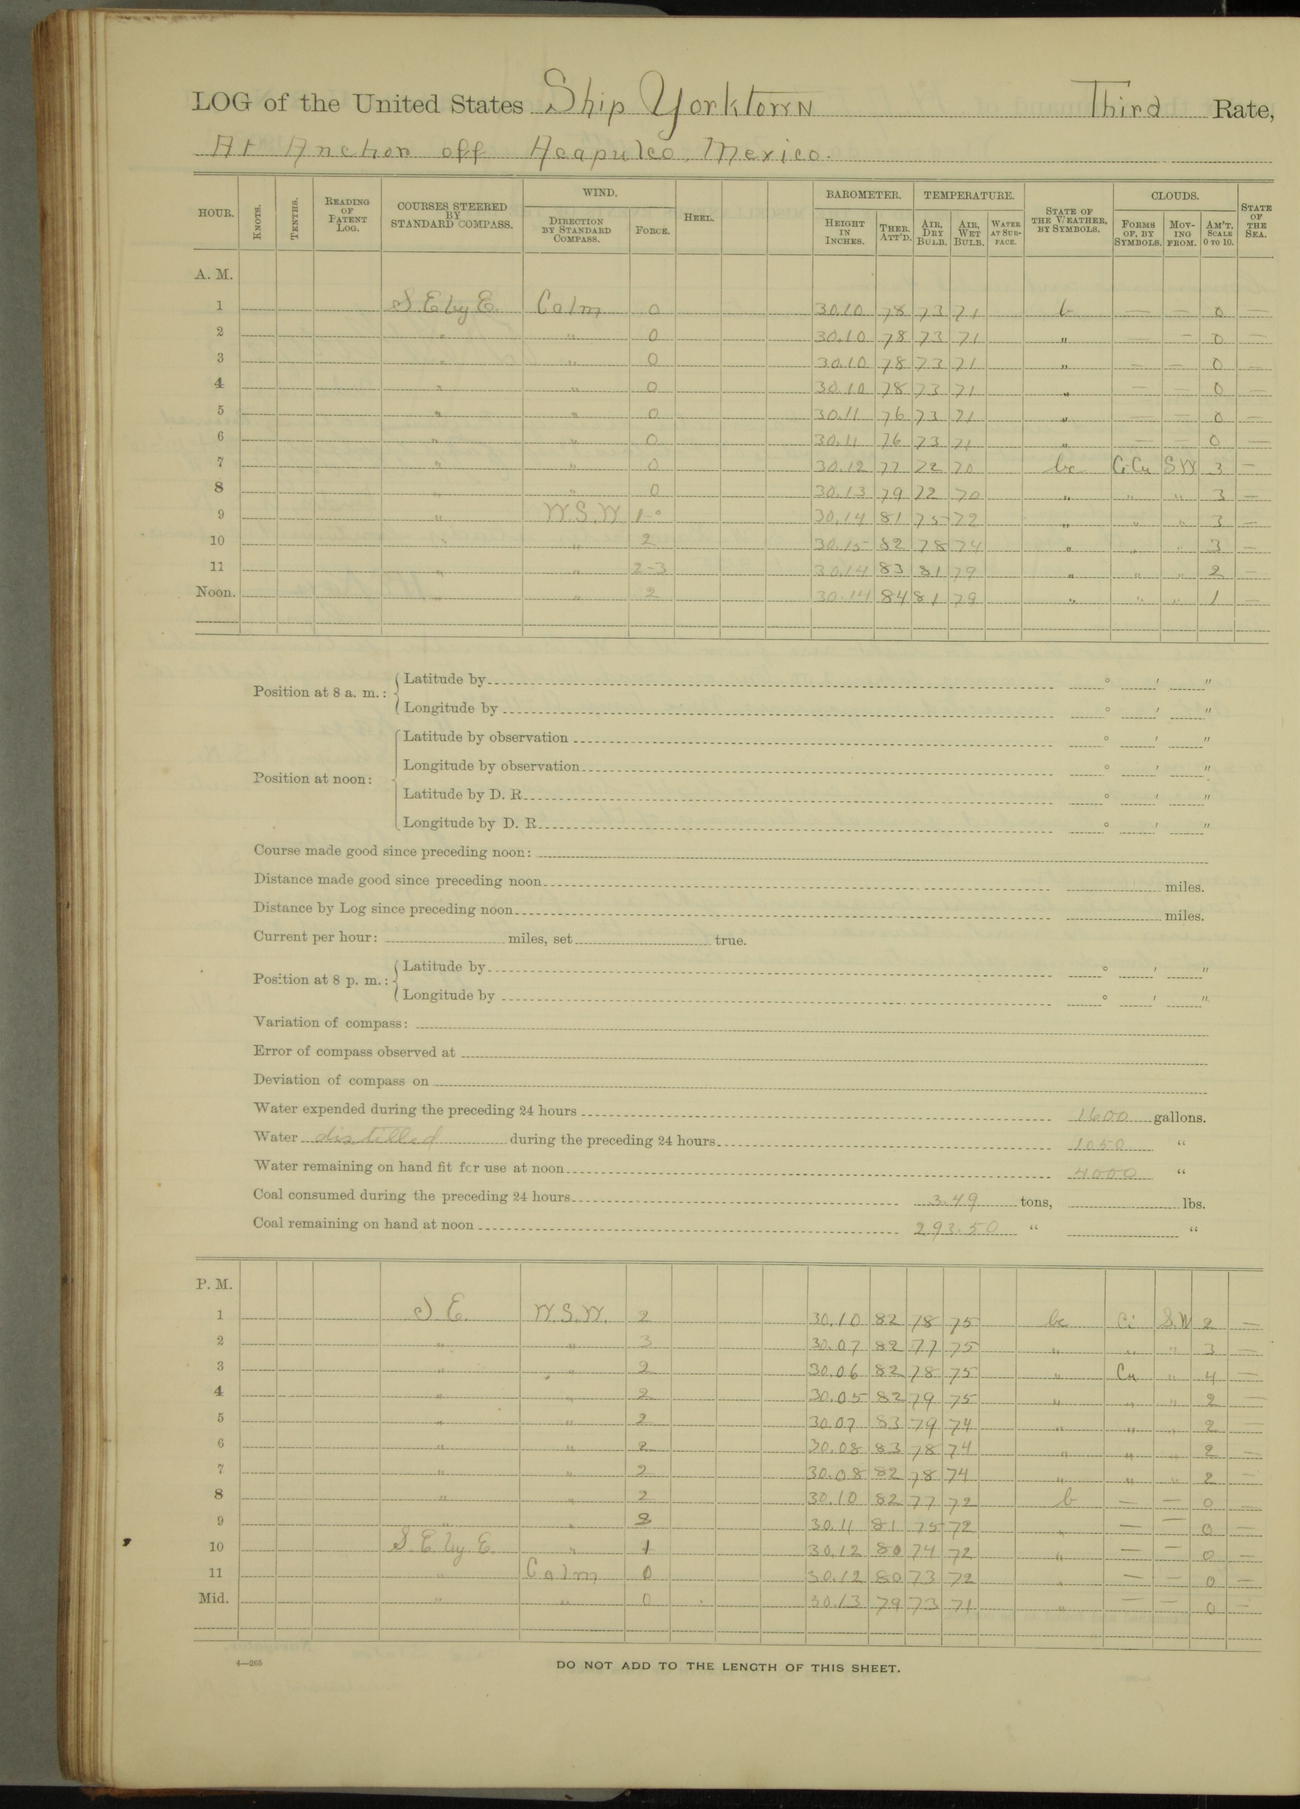 LOG of the United States Ship Yorktown Third Rate,
At Anchor off Acapulco, Mexico.
HOUR. KNOTS. TENTHS. READING OF PATENT LOG. COURSES STEERED BY STANDARD COMPASS. WIND. DIRECTION BY STANDARD COMPASS. FORCE. HEEL. BAROMETER. HEIGHT IN INCHES. THER. ATT'D. TEMPERATURE. AIR, DRY BULB. AIR, WET BULB. WATER AT SURFACE. STATE OF THE WEATHER, BY SYMBOLS. CLOUDS. FORMS OF, BY SYMBOLS. MOVING FROM. AM'T, SCALE 0 TO 10. STATE OF THE SEA.
A. M.
1 S E by E. Calm 0 30.10 78 73 71 b — — 0 —
2 " " 0 30.10 78 73 71 " — — 0 —
3 " " 0 30.10 78 73 71 " — — 0 —
4 " " 0 30.10 78 73 71 " — — 0 —
5 " " 0 30.11 76 73 71 " — — 0 —
6 " " 0 30.11 76 73 71 " — — 0 —
7 " " 0 30.12 77 72 70 bc Ci-Cu S W 3 —
8 " " 0 30.13 79 72 70 " " " 3 —
9 " W.S.W 1-0 30.14 81 75 72 " " " 3 —
10 " " 2 30.15 82 78 74 " " " 3 —
11 " " 2-3 30.14 83 81 79 " " " 2 —
Noon. " " 2 30.14 84 81 79 " " " 1 —
Position at 8 a. m.: Latitude by ° ′ ″
Longitude by ° ′ ″
Position at noon: Latitude by observation ° ′ ″
Longitude by observation ° ′ ″
Latitude by D. R. ° ′ ″
Longitude by D. R. ° ′ ″
Course made good since preceding noon:
Distance made good since preceding noon miles.
Distance by Log since preceding noon miles.
Current per hour: miles, set true.
Position at 8 p. m.: Latitude by ° ′ ″
Longitude by ° ′ ″
Variation of compass:
Error of compass observed at
Deviation of compass on
Water expended during the preceding 24 hours 1600 gallons.
Water distilled during the preceding 24 hours 1050 "
Water remaining on hand fit for use at noon 4000 "
Coal consumed during the preceding 24 hours 3.49 tons, lbs.
Coal remaining on hand at noon 293.50 " "
P. M.
1 S E. W.S.W. 2 30.10 82 78 75 bc Ci S.W 2 —
2 " " 3 30.07 82 77 75 " " " 3 —
3 " " 2 30.06 82 78 75 " Cu " 4 —
4 " " 2 30.05 82 79 75 " " " 2 —
5 " " 2 30.07 83 79 74 " " " 2 —
6 " " 2 30.08 83 78 74 " " " 2 —
7 " " 2 30.08 82 78 74 " " " 2 —
8 " " 2 30.10 82 77 72 b — — 0 —
9 " " 30.11 81 75 72 " — — 0 —
10 S. E. by E. " 1 30.12 80 74 72 " — — 0 —
11 " Calm 0 30.12 80 73 72 " — — 0 —
Mid. " " 0 30.13 79 73 71 " — — 0 —
4—265
DO NOT ADD TO THE LENGTH OF THIS SHEET.